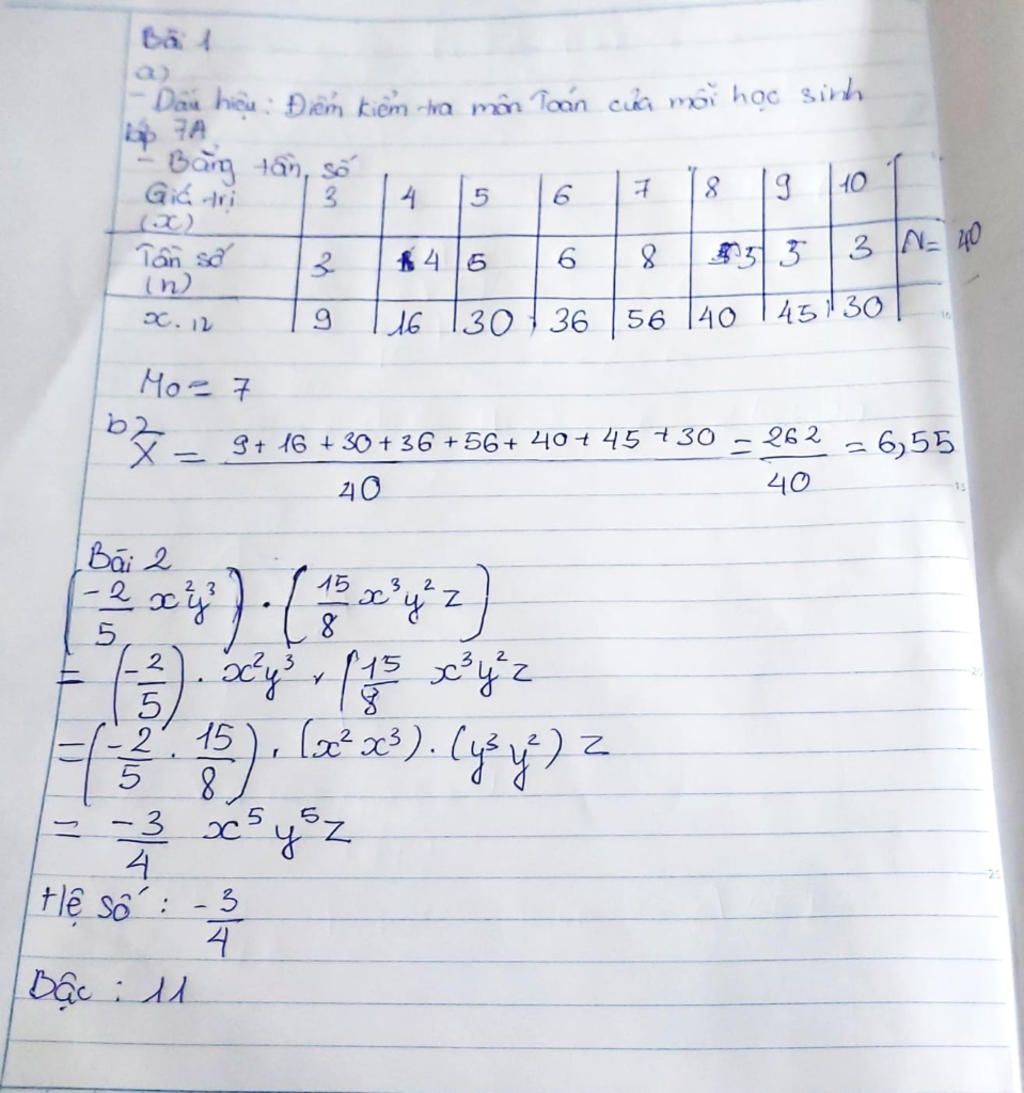 Bài 1
a)
- Dấu hiệu: Điểm kiểm tra môn Toán của mỗi học sinh
lớp 7A
- Bảng tần số
Giá trị (x) 3 4 5 6 7 8 9 10
Tần số (n) 3 4 6 8 5 5 3 N= 40
x.n 9 16 30 36 56 40 45 30
Mo = 7
b) X̄ = (9+16+30+36+56+40+45+30)/40 = 262/40 = 6,55
Bài 2
(-2/5 x²y³) . (15/8 x³y²z)
= (-2/5) . x²y³ . (15/8 x³y²z
= (-2/5 . 15/8) . (x² x³) . (y³ y²) z
= -3/4 x⁵y⁵z
Hệ số: -3/4
Bậc : 11